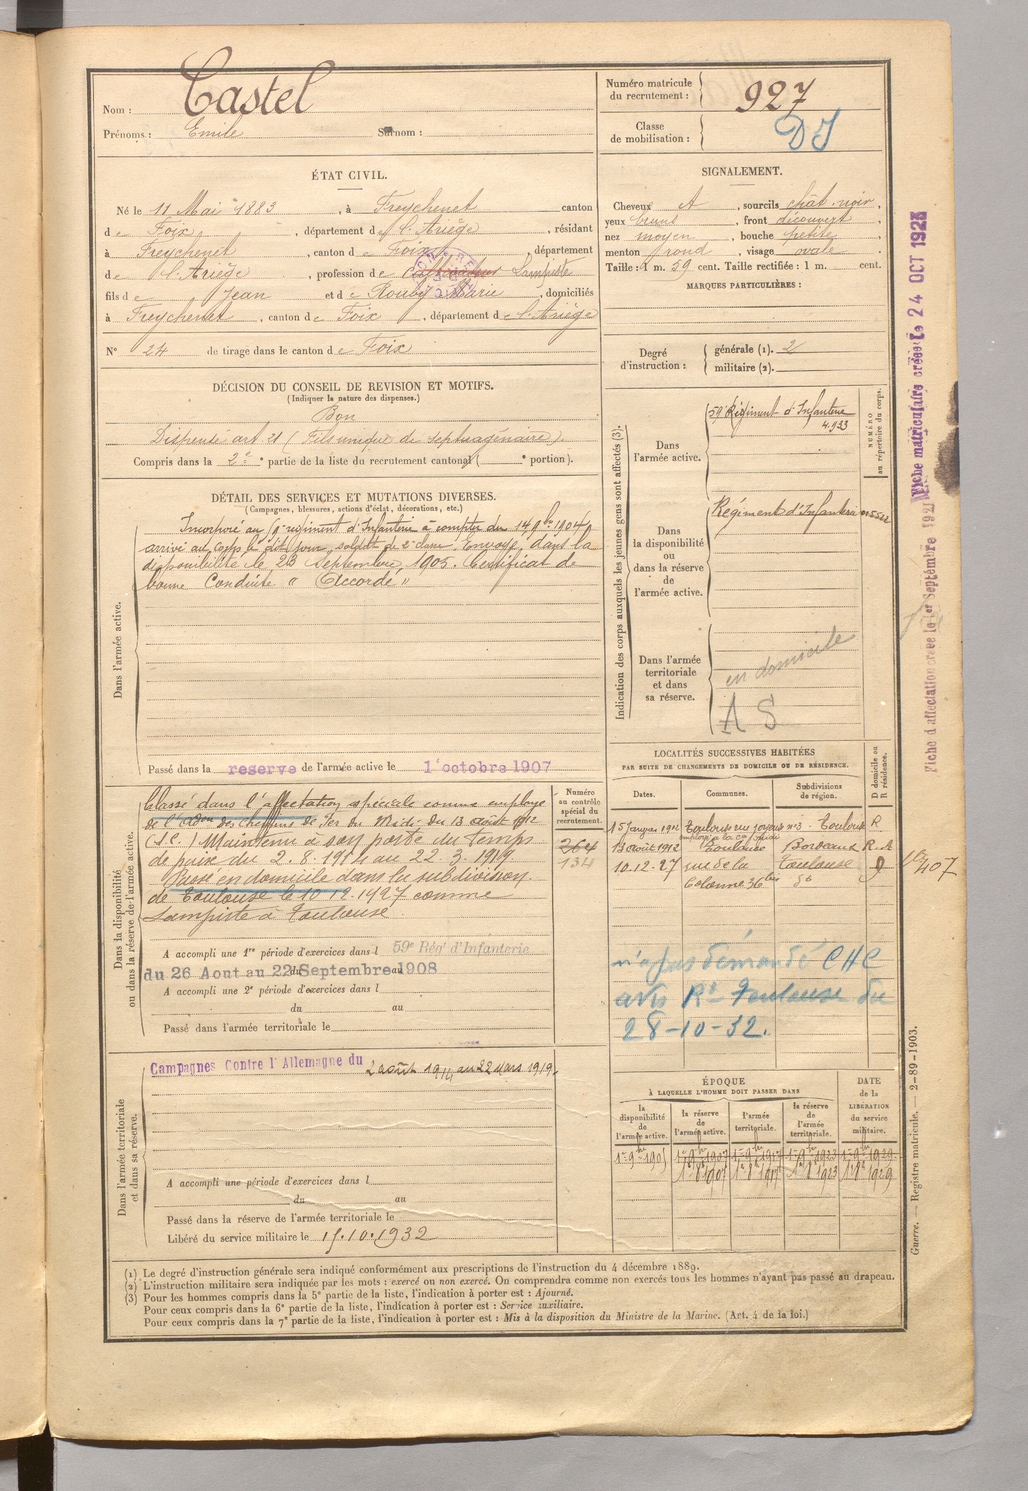 Nom : Castel
Prénoms : Emile Surnom :
Numéro matricule
du recrutement : 927
Classe
de mobilisation : DS
ÉTAT CIVIL.
Né le 11 Mai 1883, à Freychenet canton
de Foix, département de l'Ariège, résidant
à Freychenet, canton de Foix, département
de l'Ariège, profession de Lampiste
fils de Jean et de Rouby Marie, domiciliés
à Freychenet, canton de Foix, département de l'Ariège
N° 24 de tirage dans le canton de Foix
SIGNALEMENT.
Cheveux, sourcils chât. noir,
yeux bruns, front découvert
nez moyen, bouche petite,
menton rond, visage ovale
Taille : 1 m. 59 cent. Taille rectifiée : 1 m. cent.
MARQUES PARTICULIÈRES :
Degré
d'instruction : générale (1). 2
militaire (2).
DÉCISION DU CONSEIL DE REVISION ET MOTIFS.
(Indiquer la nature des dispenses.)
Bon
Dispensé art 21 (Fils unique de septuagénaire).
Compris dans la 2e partie de la liste du recrutement cantonal ( e portion).
DÉTAIL DES SERVICES ET MUTATIONS DIVERSES.
(Campagnes, blessures, actions d'éclat, décorations, etc.)
Dans l'armée active.
Incorporé au régiment d'Infanterie à compter du 14 9bre 1904
arrivé au corps le dit jour, soldat de 2e classe. Envoyé dans la
disponibilité le 23 septembre 1905. Certificat de
bonne Conduite " Accordé "
Passé dans la reserve de l'armée active le 1er octobre 1907
Indication des corps auxquels les jeunes gens sont affectés (3).
NUMÉRO
au répertoire du corps.
Dans
l'armée active.
59e Régiment d'Infanterie
4.933
Dans
la disponibilité
ou
dans la réserve
de
l'armée active.
Régiment d'Infanterie
Dans l'armée
territoriale
et dans
sa réserve.
en domicile
A S
Dans la disponibilité
ou dans la réserve de l'armée active.
Classé dans l'affectation spéciale comme employé
de la des chemins de Fer du Midi du 13 août 1912
Maintenu à son poste du temps
de paix du 2.8.1914 au 22.3.1919.
Passé en domicile dans la subdivision
de Toulouse le 10.12.1927 comme
Lampiste à Toulouse
A accompli une 1re période d'exercices dans l 59e Régt d'Infanterie
du 26 Aout au 22 Septembre 1908
A accompli une 2e période d'exercices dans l
du au
Passé dans l'armée territoriale le
Numéro
au contrôle
spécial du
recrutement.
264
134
LOCALITÉS SUCCESSIVES HABITÉES
PAR SUITE DE CHANGEMENTS DE DOMICILE OU DE RÉSIDENCE.
Dates. Communes. Subdivisions
de région. D domicile ou
R résidence.
15 Janvier 1912 Toulouse n° 3 Toulouse R
13 août 1912 Toulouse Bordeaux R. A
10.12.27 rue de la Toulouse
Colonne 36 bis do
407
n'a pas demandé CHC
avis Rt Toulouse du
28-10-32.
Dans l'armée territoriale
et dans sa réserve.
Campagnes Contre l'Allemagne du 2 août 1914 au 22 mars 1919.
A accompli une période d'exercices dans l
du au
Passé dans la réserve de l'armée territoriale le
Libéré du service militaire le 15.10.1932
ÉPOQUE
À LAQUELLE L'HOMME DOIT PASSER DANS
DATE
de la
LIBÉRATION
du service
militaire.
la
disponibilité
de
l'armée active.
la réserve
de
l'armée active.
l'armée
territoriale.
la réserve
de
l'armée
territoriale.
1er 9bre 1905 1er 9bre 1907 1er 9bre 1917 1er 9bre 1923 1er 9bre 1929
1er 8bre 1907 1er 8bre 1917 1er 8bre 1923 1er 8bre 1929
(1) Le degré d'instruction générale sera indiqué conformément aux prescriptions de l'instruction du 4 décembre 1889.
(2) L'instruction militaire sera indiquée par les mots : exercé ou non exercé. On comprendra comme non exercés tous les hommes n'ayant pas passé au drapeau.
(3) Pour les hommes compris dans la 5e partie de la liste, l'indication à porter est : Ajourné.
Pour ceux compris dans la 6e partie de la liste, l'indication à porter est : Service auxiliaire.
Pour ceux compris dans la 7e partie de la liste, l'indication à porter est : Mis à la disposition du Ministre de la Marine. (Art. 4 de la loi.)
Guerre. — Registre matricule. — 2-89-1903.
Fiche matriculaire créée le 24 OCT 1925
Fiche d'affectation créée le 1er Septembre 1921